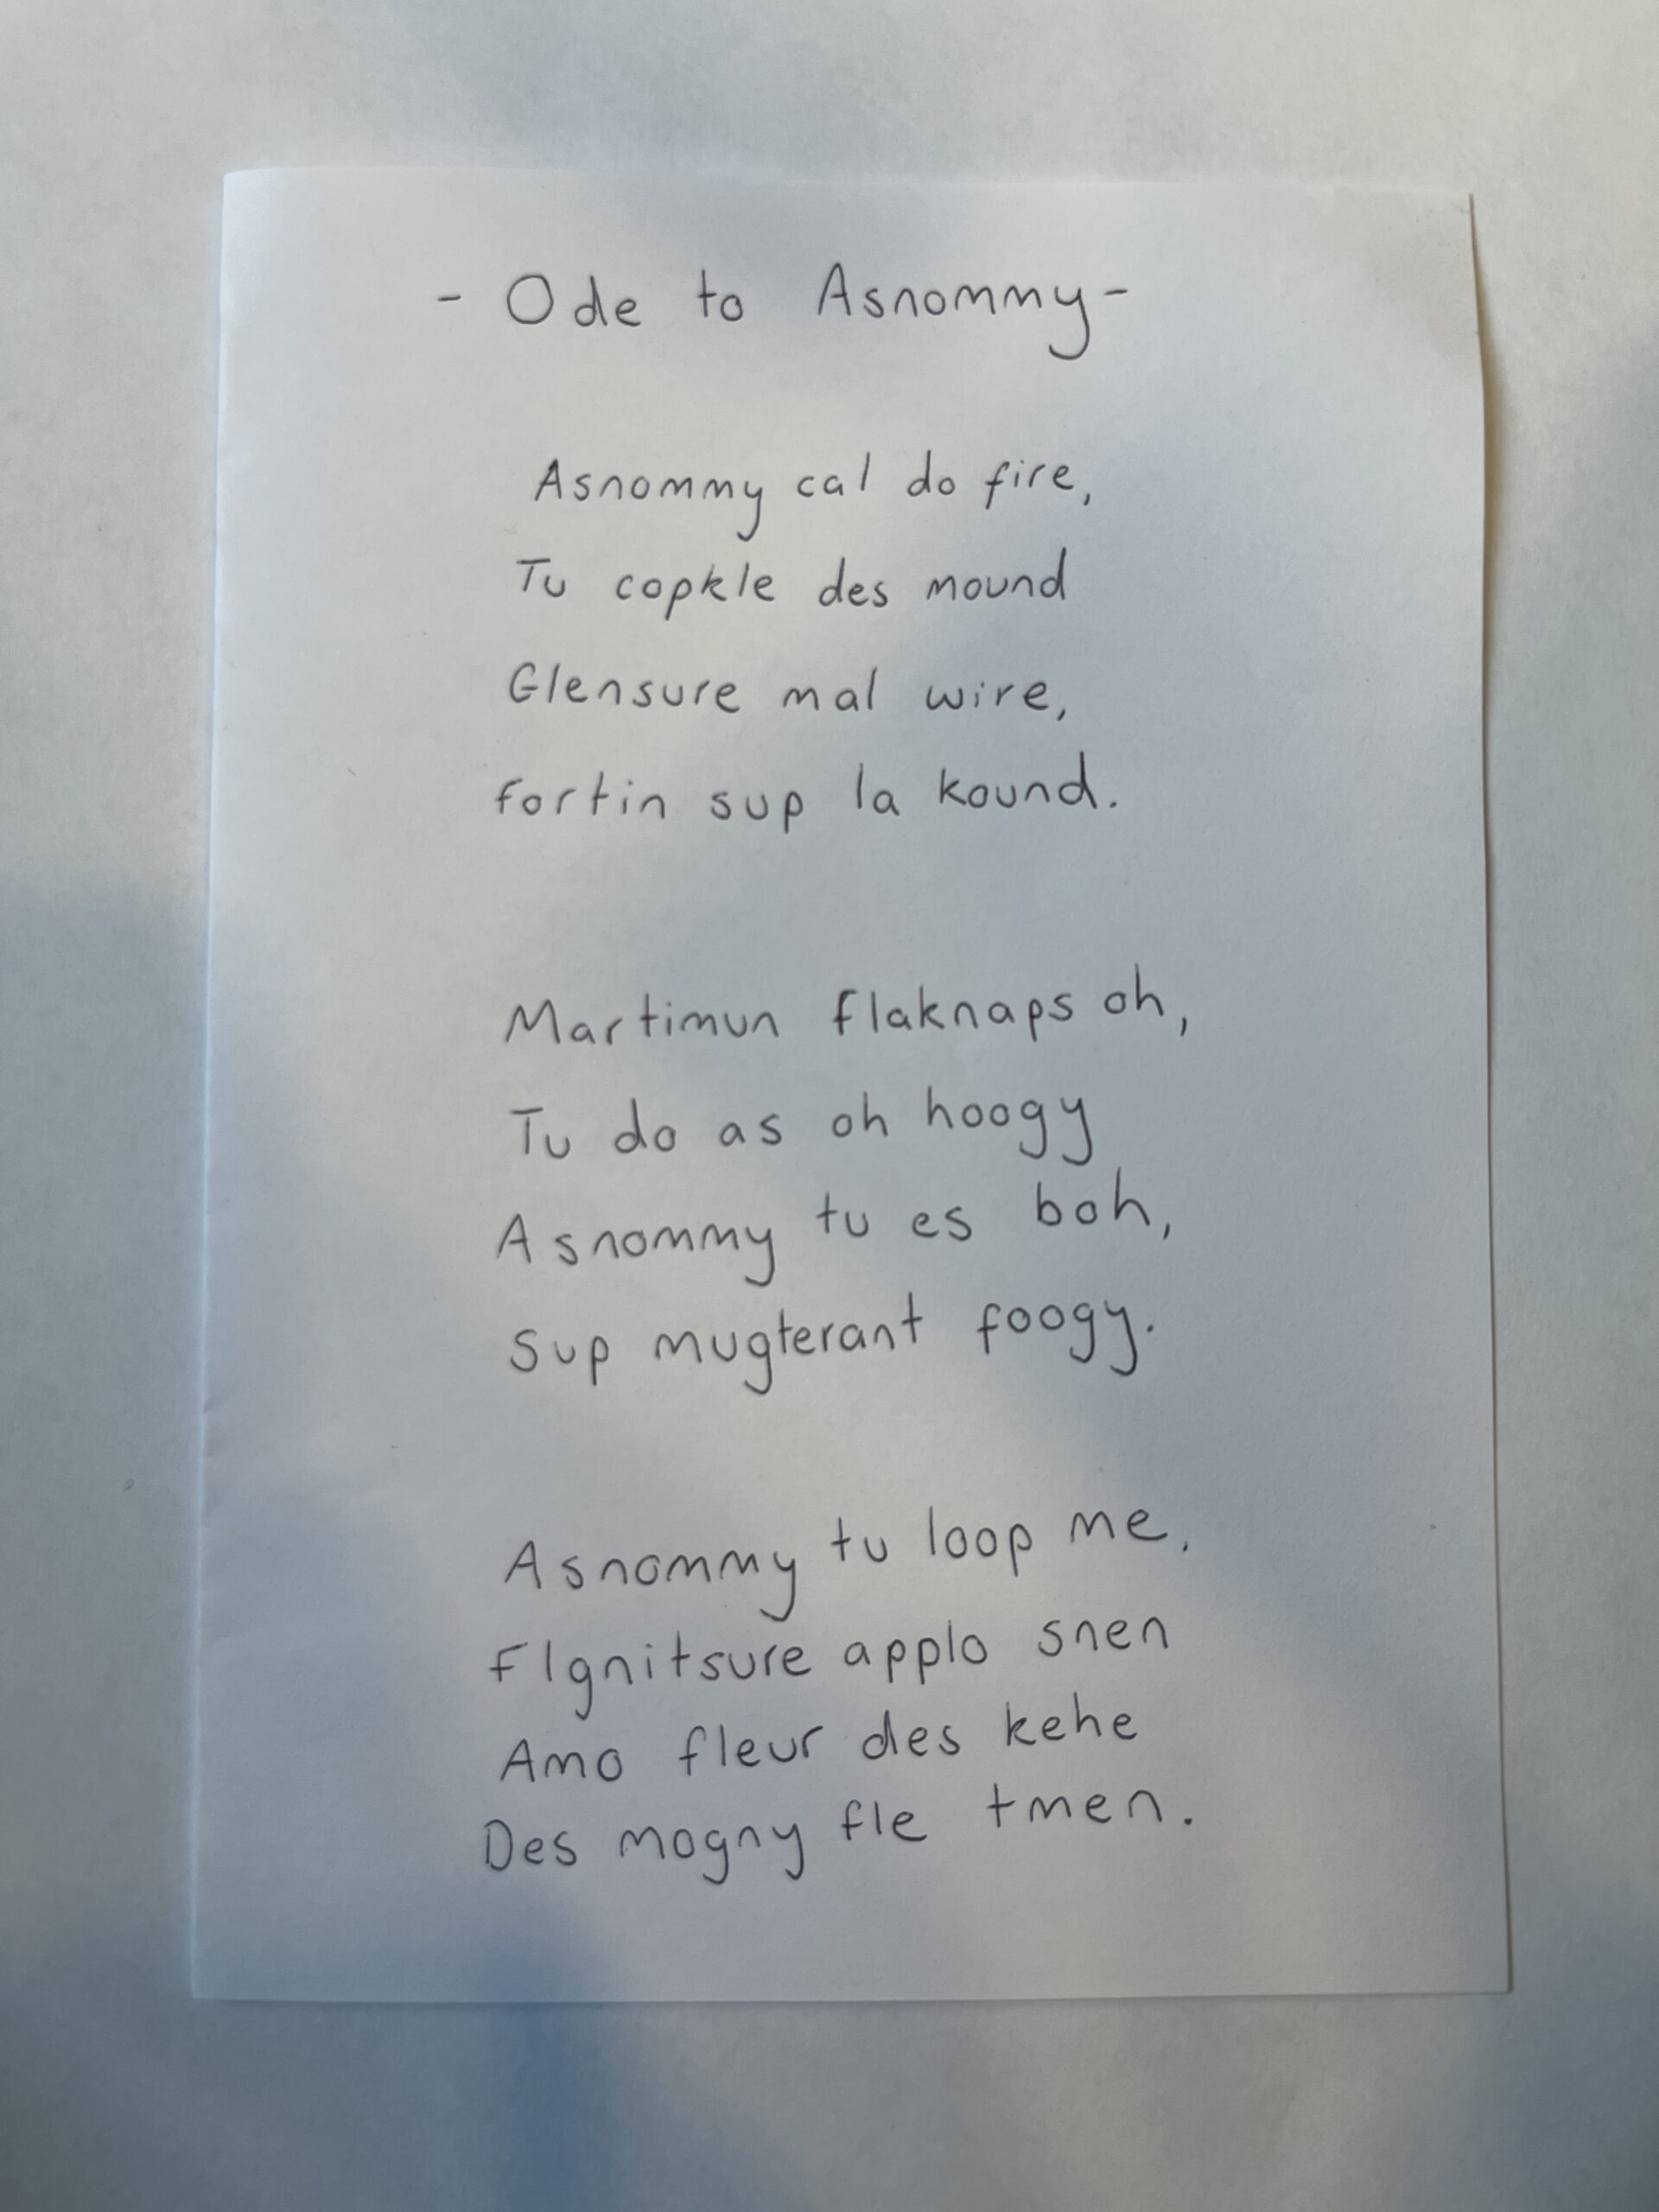 - Ode to Asnommy -
Asnommy cal do fire,
Tu copkle des mound
Glensure mal wire,
fortin sup la kound.
Martimun flaknaps oh,
Tu do as oh hoogy
Asnommy tu es boh,
Sup mugterant foogy.
Asnommy tu loop me,
Flgnitsure applo snen
Amo fleur des kehe
Des mogny fle tmen.